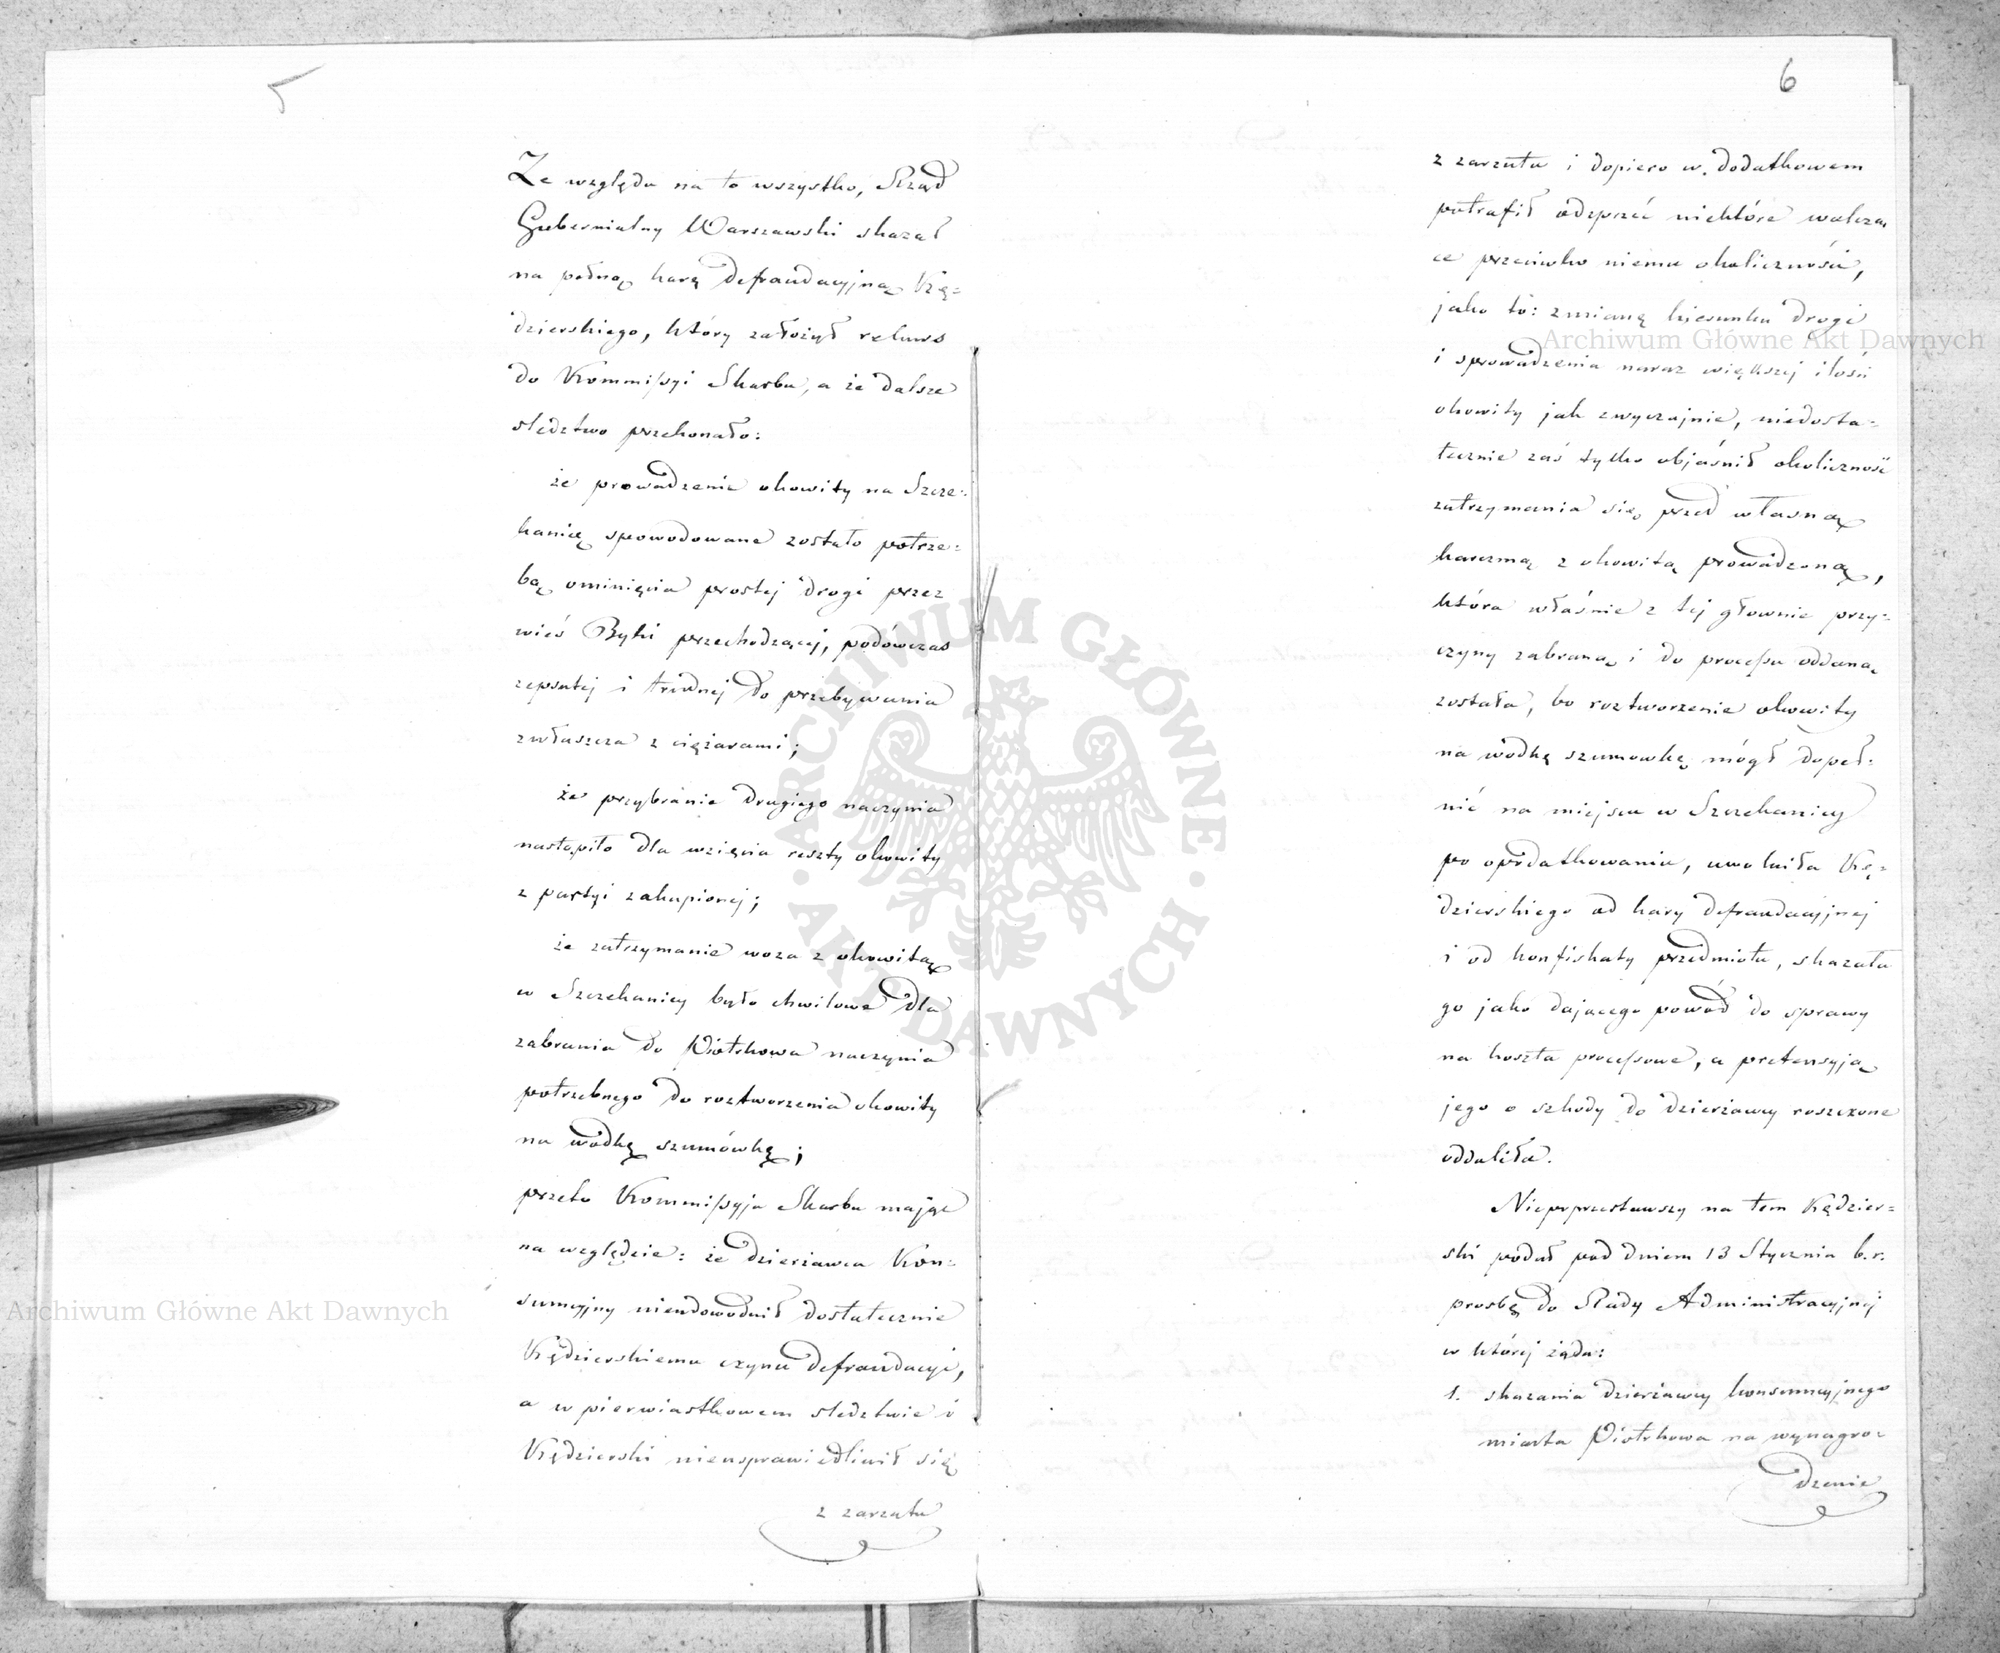 5
Ze względu na to wszystko, Rząd
Gubernialny Warszawski skazał
na pełną karę defraudacyjną Kę=
dzierskiego, który założył rekurs
do Kommissyi Skarbu, a że dalsze
sledztwo przekonało:
że prowadzenie okowity na Szcze=
kanicę spowodowane zostało potrze=
bą ominięcia prostej drogi przez
wieś Byki przechodzącej, podówczas
zepsutej i trudnej do przebywania
zwłaszcza z ciężarami;
że przybranie drugiego naczynia
nastąpiło dla wzięcia reszty okowity
z partyi zakupionej;
że zatrzymanie woza z okowitą
w Szczekanicy było chwilowe dla
zabrania do Piotrkowa naczynia
potrzebnego do roztworzenia okowity
na wódkę szumówkę;
przeto Kommissyja Skarbu mając
na względzie: że dzierżawca Kon=
sumcyjny nieudowodnił dostatecznie
Kędzierskiemu czynu defraudacyi,
a w pierwiastkowem sledztwie i
Kędzierski nieusprawiedliwił się
z zarzutu
6
z zarzutu i dopiero w dodatkowem
potrafił odeprzeć niektóre walczą
ce przeciwko niemu okoliczności,
jako to: zmianę kierunku drogi
i sprowadzenia naraz większej ilości
okowity jak zwyczajnie, niedosta=
tecznie zaś tylko objaśnił okoliczność
zatrzymania się przed własną
karczmą z okowitą prowadzoną,
która właśnie z tej głownie przy=
czyny zabraną i do processu oddaną
została, bo roztworzenie okowity
na wódkę szumowkę mógł dopeł=
nić na miejscu w Szczekanicy
po opodatkowaniu, uwolniła Kę=
dzierskiego od kary defraudacyjnej
i od konfiskaty przedmiotu, skazała
go jako dającego powód do sprawy
na koszta processowe, a pretensyją
jego o szkody do dzierżawcy roszczone
oddaliła.
Niepoprzestawszy na tem Kędzier=
ski podał pod dniem 13 Stycznia b.r.
prosbę do Rady Administracyjnej
w której żąda:
1. skazania dzierżawcy konsumcyjnego
miasta Piotrkowa na wynagro=
dzenie
Archiwum Główne Akt Dawnych
Archiwum Główne Akt Dawnych
ARCHIWUM GŁÓWNE AKT DAWNYCH